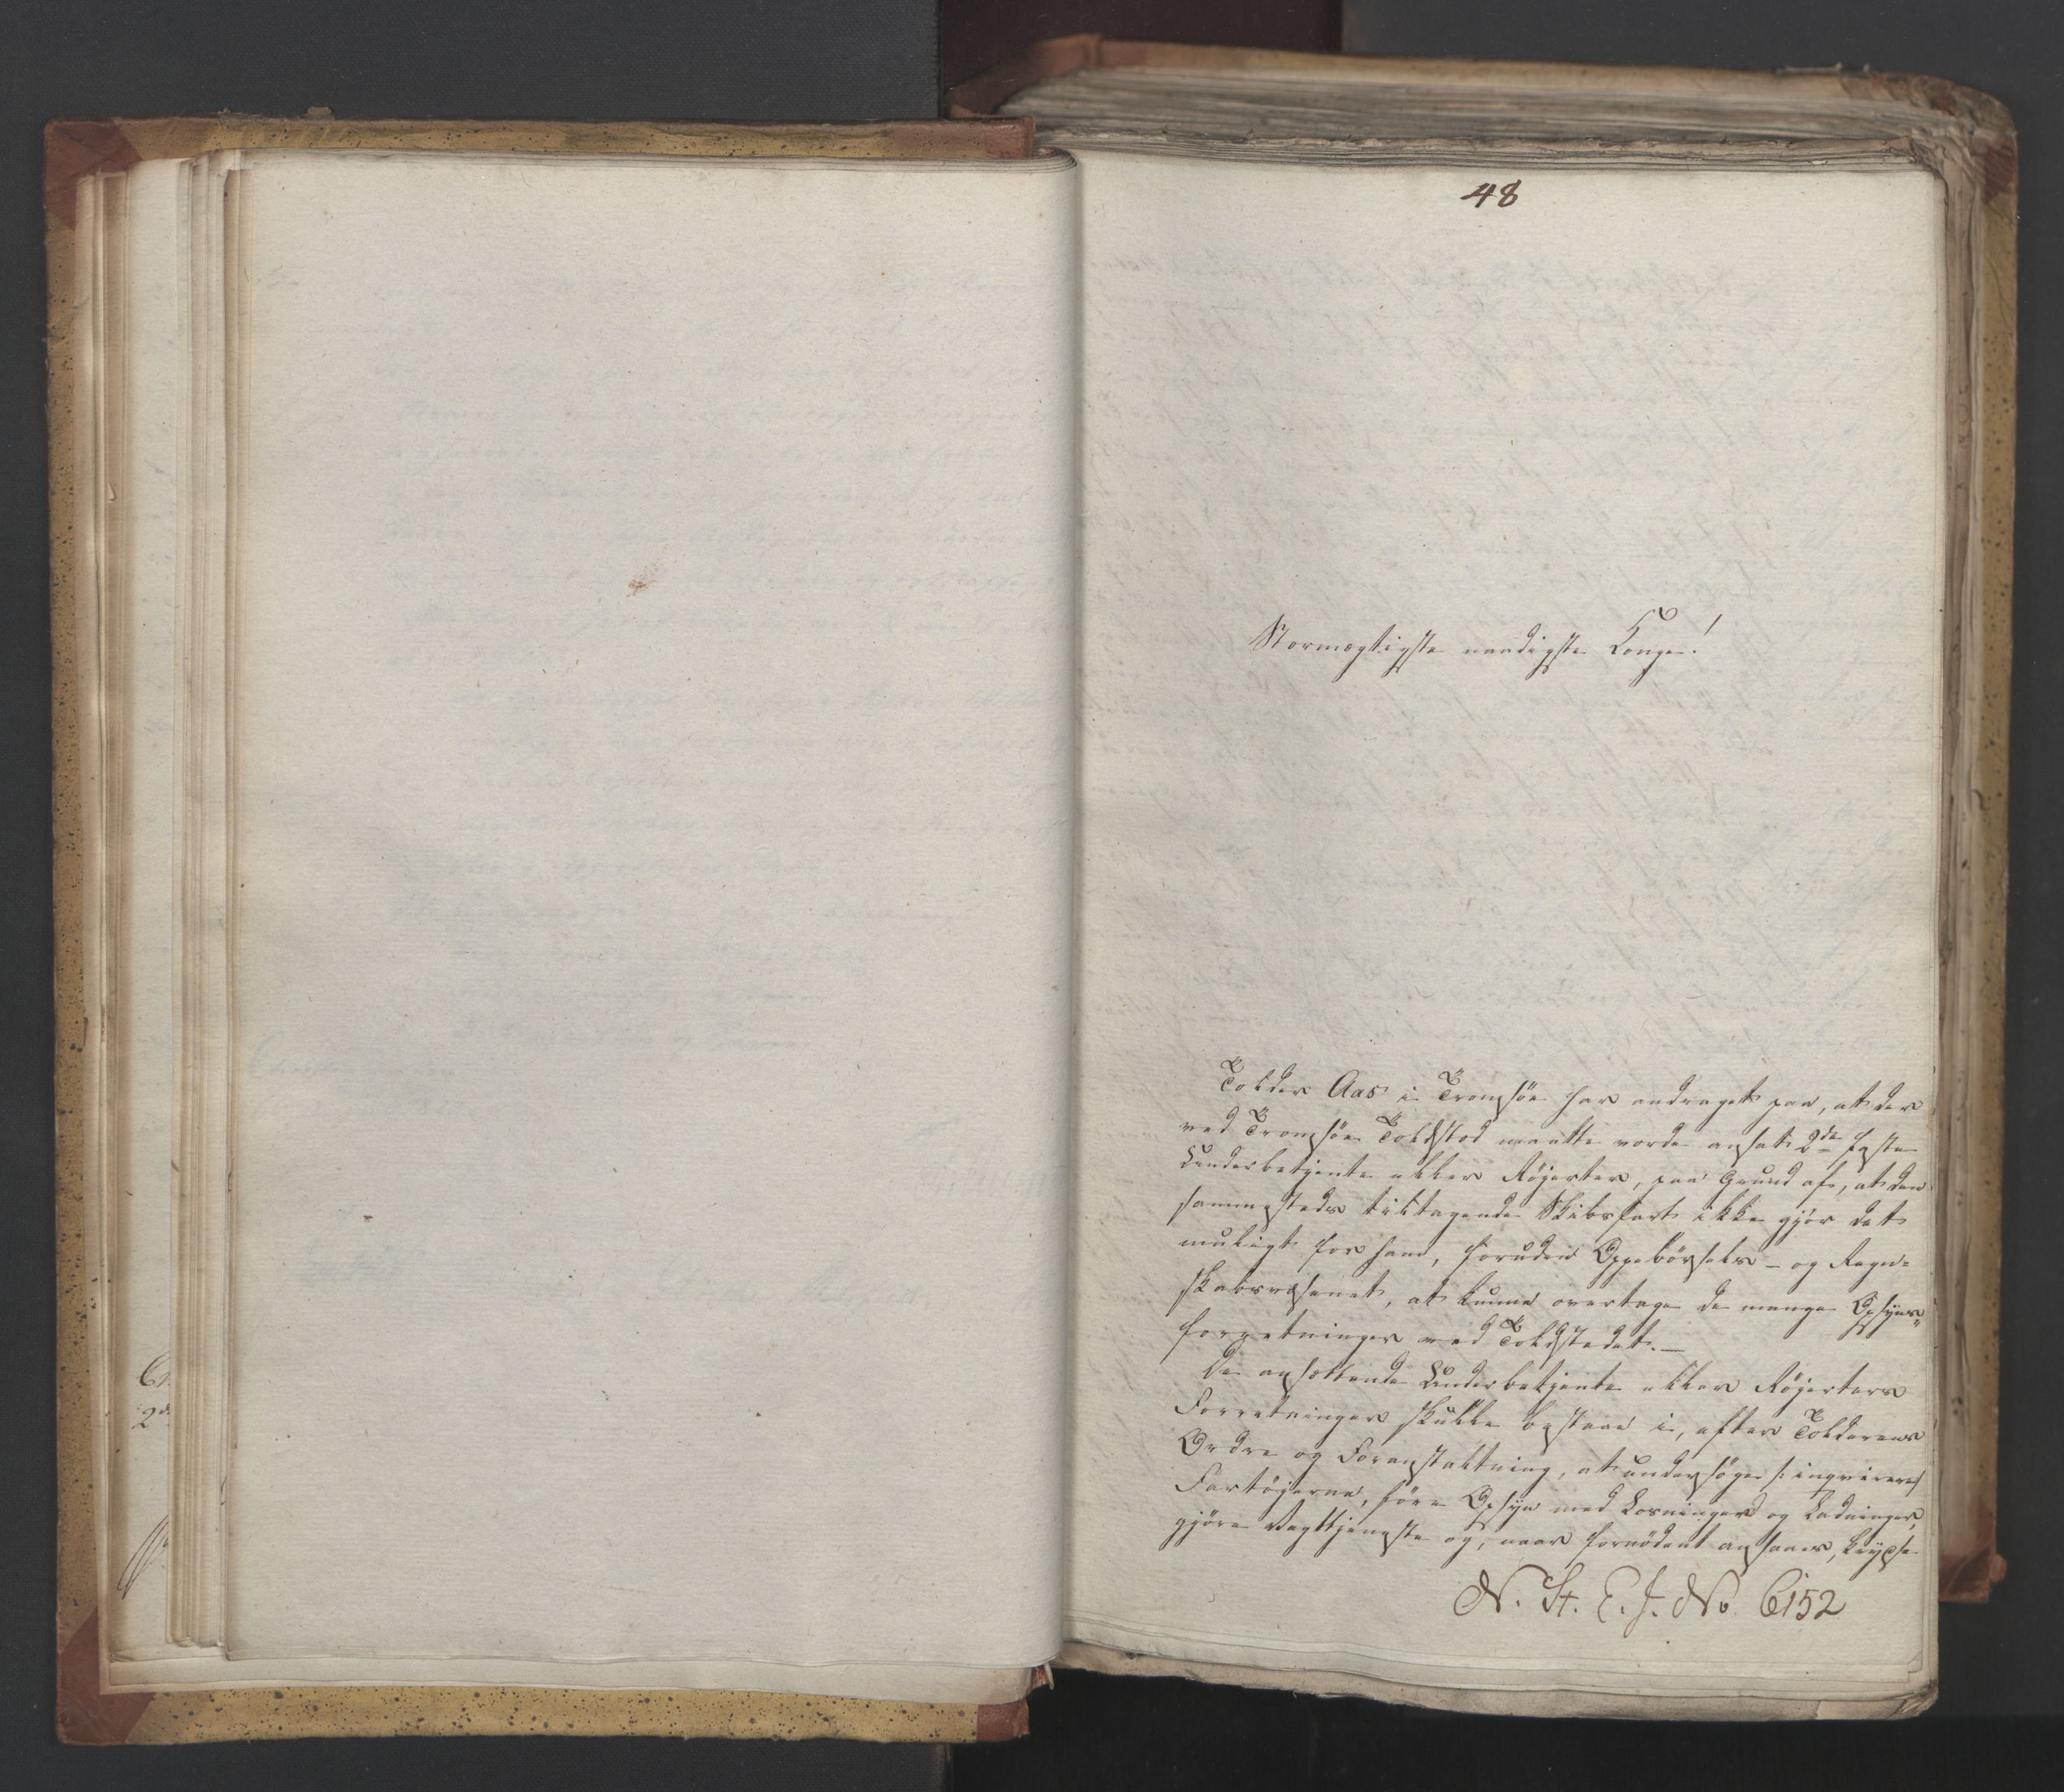 48
Stormægtigste naadigste Konge!
Tolder Aas i Tromsöe har andraget paa, at der
ved Tromsöe Toldstod maatte vorde ansat 2de faste
Underbetjente eller Röjerter, paa Grund af, at den
sammesteds tiltagende Skibsfart ikke gjör det
muligt for ham, foruden Oppebörsels- og Regn-
skabsvæsenet, at kunne overtage de mange Opsyns-
forretninger ved Toldstedet.—
De ansættende Underbetjente eller Röjerters
Forretninger skulle bestaae i, efter Tolderens
Ordre og Foranstaltning, at undersöge /: inqvirere/
Fartöjerne, före Opsyn med Losninger og Ladninger,
gjöre Vagttjeneste og, naar fornödent ansees, krydse
N. St. E. J. No 6152